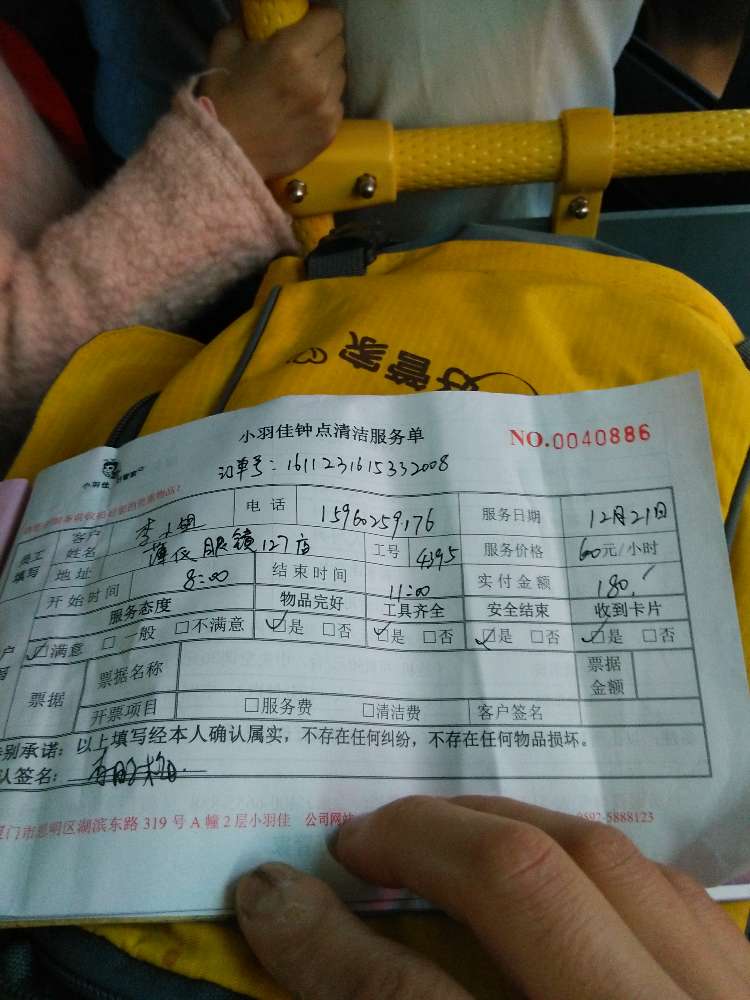 好管家
小羽佳钟点清洁服务单 NO.0040886
小羽佳 好管家
订单号：1611231615332008
员工填写 客户姓名 李小姐 电话 15960259176 服务日期 12月21日
地址 眼镜127店 工号 4395 服务价格 60元/小时
开始时间 8:00 结束时间 11:00 实付金额 180.
服务态度 物品完好 工具齐全 安全结束 收到卡片
☑满意 □一般 □不满意 ☑是 □否 ☑是 □否 ☑是 □否 ☑是 □否
票据 票据名称 票据金额
开票项目 □服务费 □清洁费 客户签名
特别承诺：以上填写经本人确认属实，不存在任何纠纷，不存在任何物品损坏。
认签名：
厦门市思明区湖滨东路319号A幢2层小羽佳 公司网站 0592-5888123